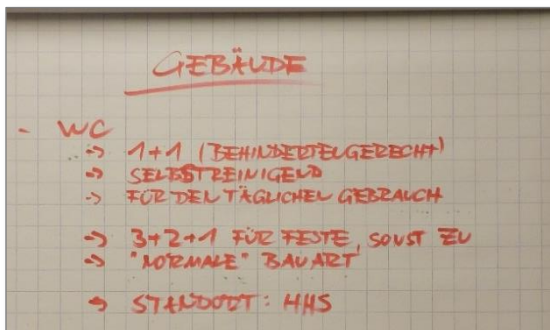 GEBÄUDE
- WC
-> 1+1 (BEHINDERTENGERECHT)
-> SELBSTREINIGEND
-> FÜR DEN TÄGLICHEN GEBRAUCH
-> 3+2+1 FÜR FESTE, SONST ZU
-> "NORMALE" BAUART
-> STANDORT: HHS